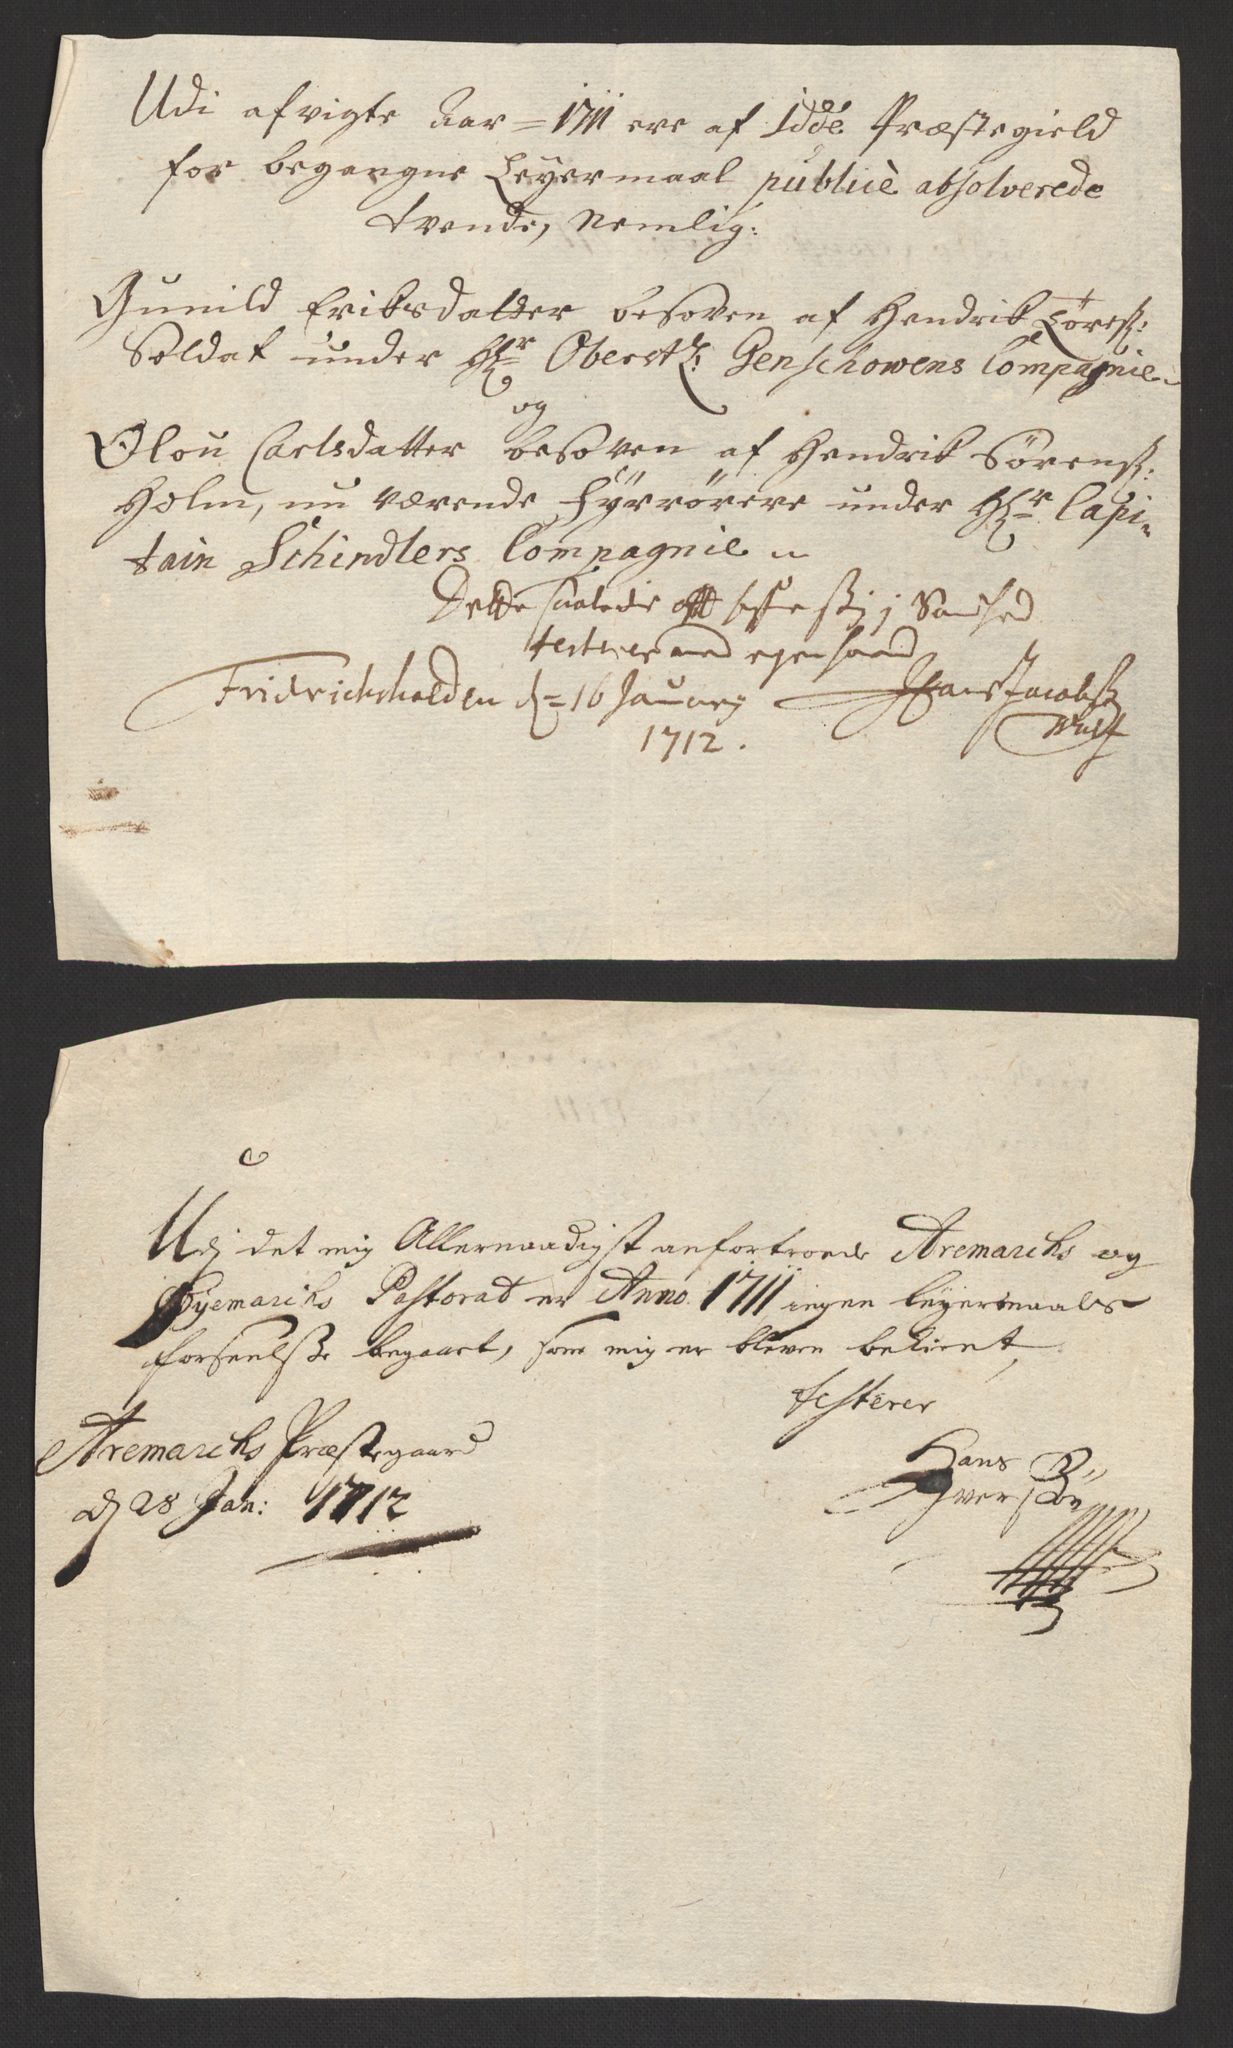 Udi afvigte Aar = 1711 ere af Idde Præstegield
for begangne Leyermaal publicè absolverede
tvende, Nemlig:
Gunild Eriksdatter besoven af Hendrik Lørens:
Soldat under Hr Oberstl: Genschowens Compagnie
og
Olou Carlsdatter besoven af Hendrik Sørens:
Holm, nu værende Fyrrörere under Hr Capi-
tain Schindlers Compagnie
Dette saaledis at i Sandhed
testerer med egen haand
Fridrichshalden d = 16 January Hans Jacobs:
1712. Wulf
Udj det mig Allernaadigst anfortroede Aremarchs og
Øyemarchs Pastorat er Anno 1711 ingen leyermaals
forseelsse begaaet, som mig er bleven bekient,
testerer
Aremarchs Præstegaard
d 28 Jan: 1712
Hans
Iverss